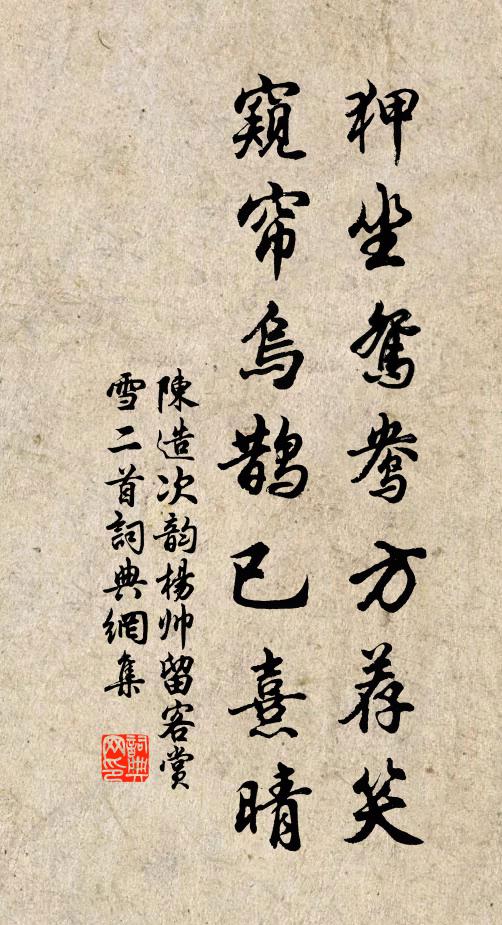 狎坐鴛鴦方荐笑
窺帘烏鵲已熹晴
陳造次韵楊帅留客賞
雪二首詞典網集
詞典
网印